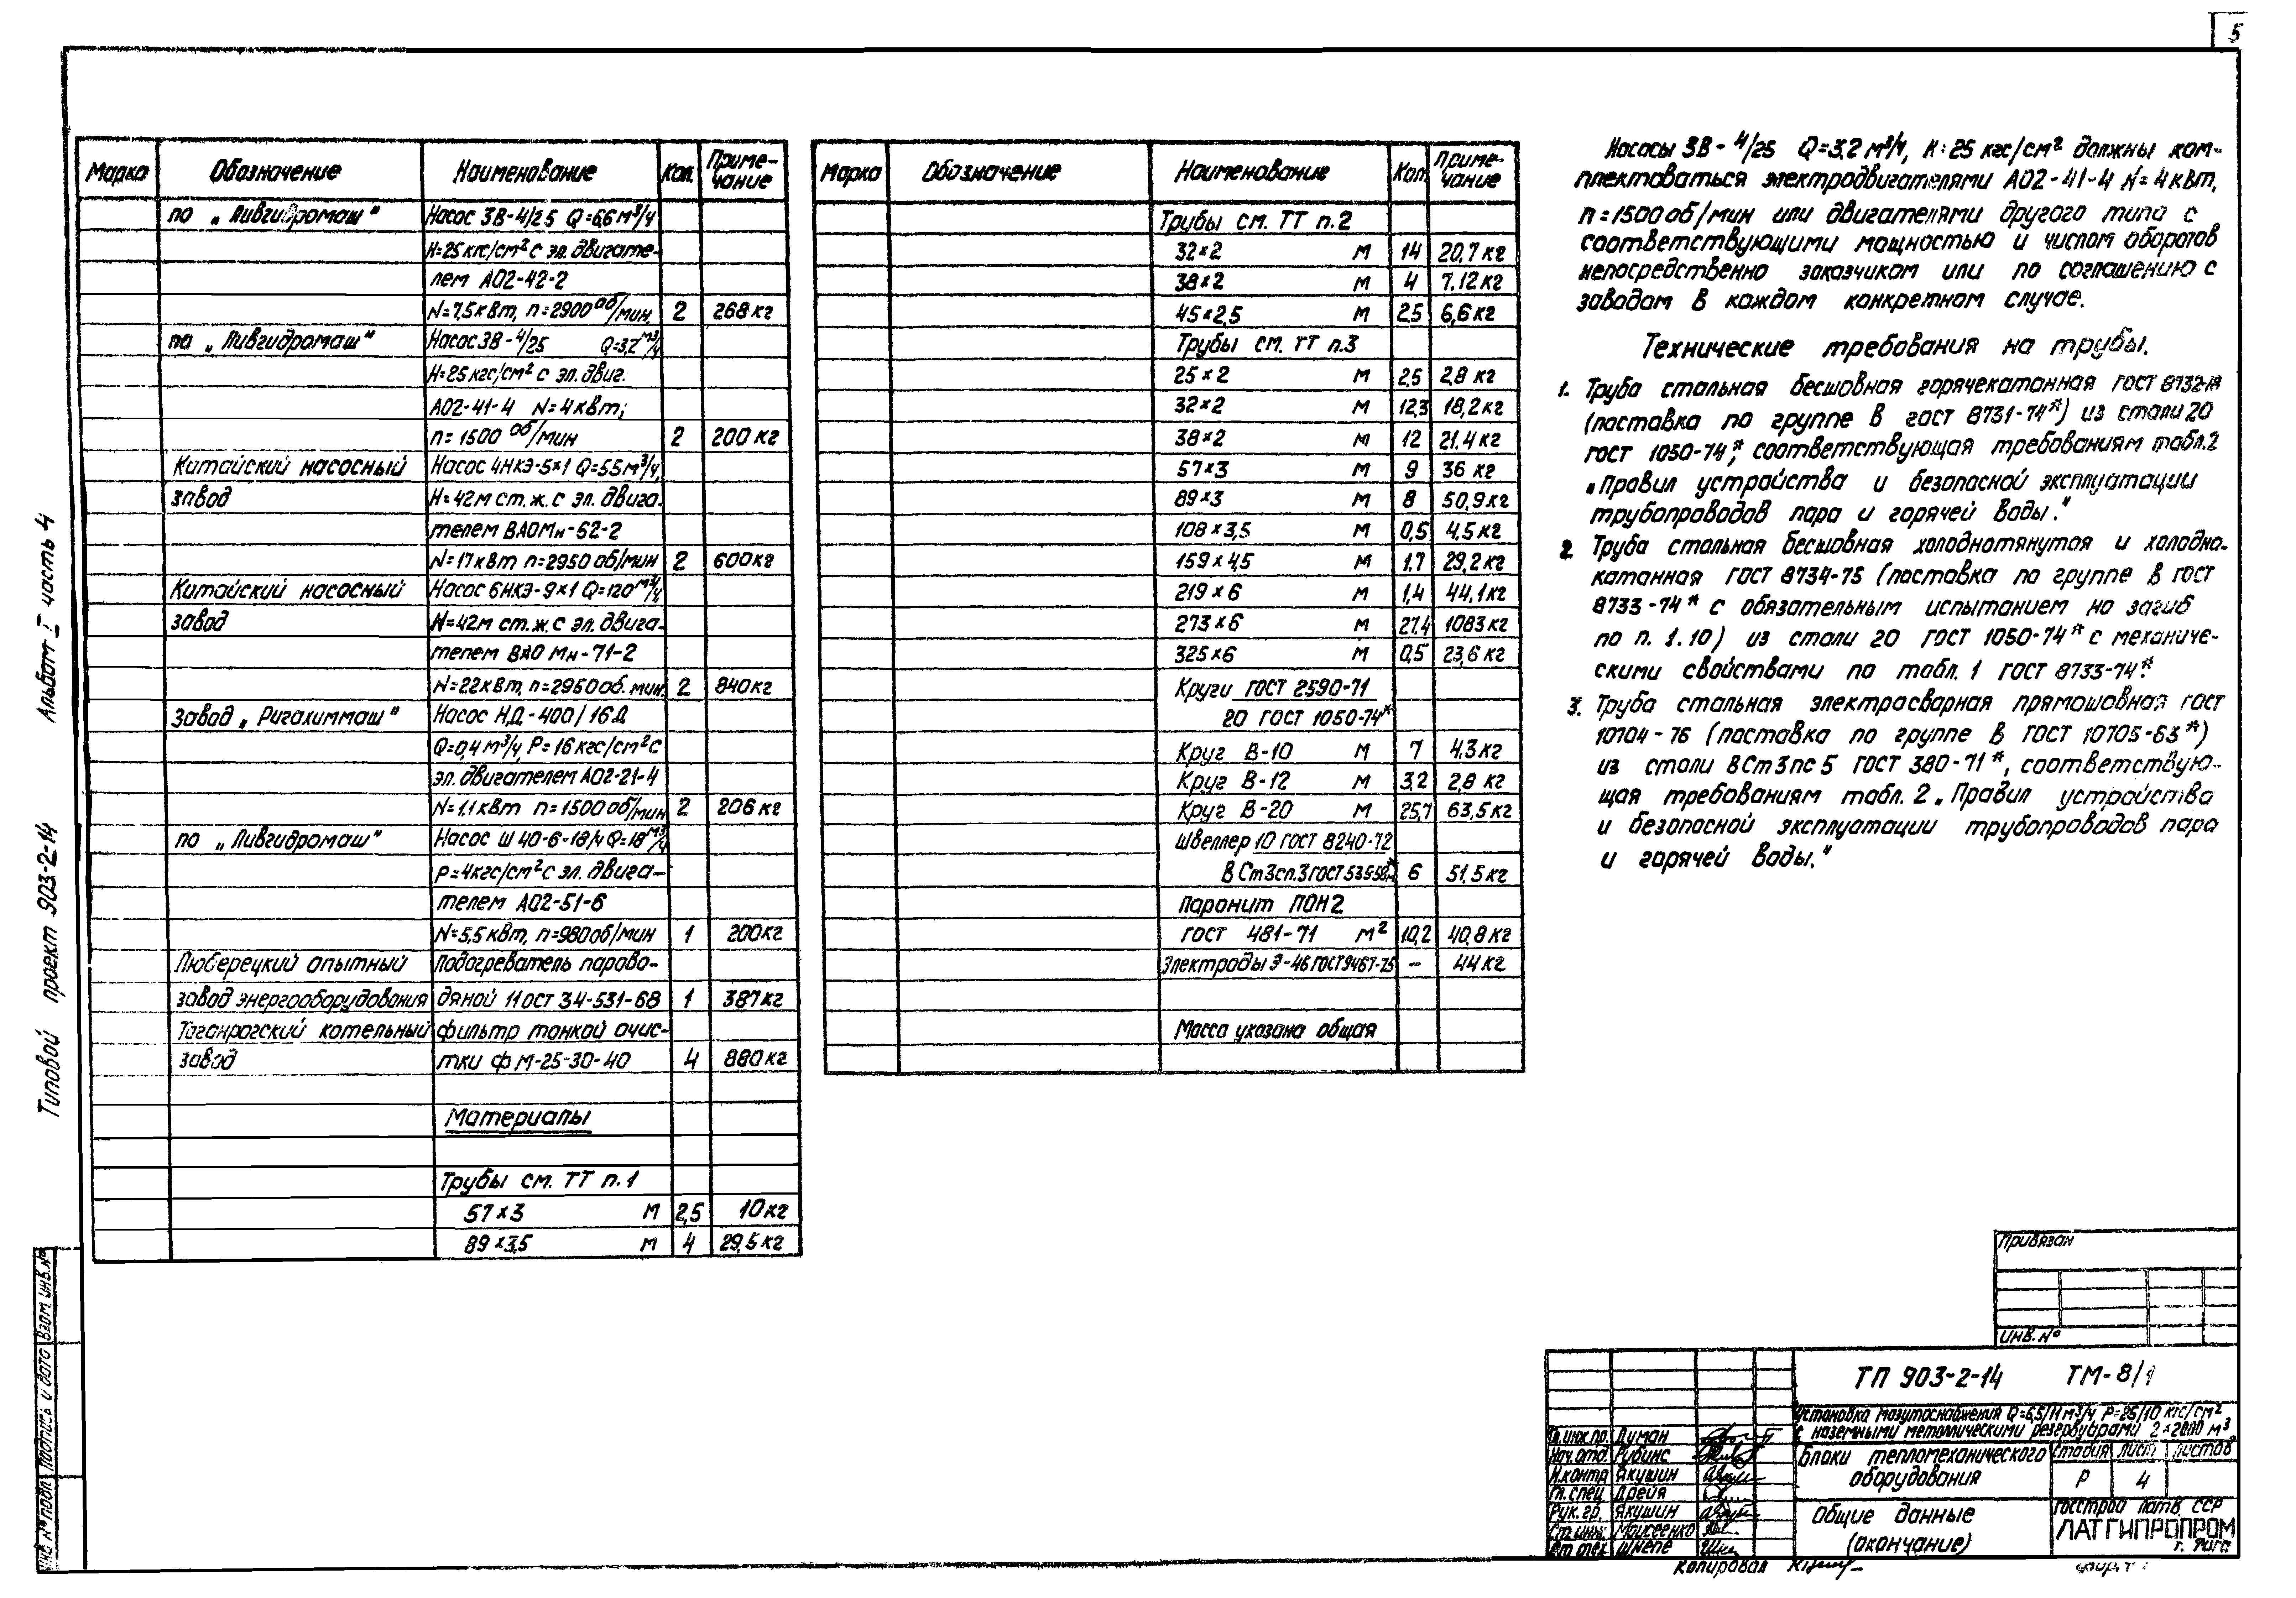 5
Марка Обозначение Наименование Кол. Приме-
чание
по „Ливгидромаш" Насос 3В-4/25 Q=6,6 м³/ч
H=25 кгс/см² с эл. двигате-
лем АО2-42-2
N=7,5 квт, n=2900 об/мин. 2 268 кг
по „Ливгидромаш" Насос 3В-4/25 Q=3,2 м³/ч
H=25 кгс/см² с эл. двиг.
АО2-41-4 N=4 квт;
n=1500 об/мин 2 200 кг
Китайский насосный Насос 4НКЭ-5×1 Q=55 м³/ч,
завод H=42 м ст.ж. с эл. двига-
телем ВАОМн-62-2
N=17 квт n=2950 об/мин 2 600 кг
Китайский насосный Насос 6НКЭ-9×1 Q=120 м³/ч
завод H=42 м ст.ж. с эл. двига-
телем ВАО Мн-71-2
N=22 квт, n=2950 об. мин. 2 840 кг
Завод „Ригахиммаш" Насос НД-400/16Д
Q=0,4 м³/ч, P=16 кгс/см² с
эл. двигателем АО2-21-4
N=1,1 квт n=1500 об/мин 2 206 кг
по „Ливгидромаш" Насос Ш 40-6-18/4 Q=18 м³/ч
P=4 кгс/см² с эл. двига-
телем АО2-51-6
N=5,5 квт, n=980 об/мин 1 200 кг
Люберецкий опытный Подогреватель парово-
завод энергооборудования дяной 11 ост 34-531-68 1 387 кг
Таганрогский котельный фильтр тонкой очис-
завод тки ФМ-25-30-40 4 880 кг
Материалы
Трубы см. ТТ п.1
57×3 м 2,5 10 кг
89×3,5 м 4 29,5 кг
Марка Обозначение Наименование Кол. Приме-
чание
Трубы см. ТТ п.2
32×2 м 14 20,7 кг
38×2 м 4 7,12 кг
45×2,5 м 2,5 6,6 кг
Трубы см. ТТ п.3
25×2 м 2,5 2,8 кг
32×2 м 12,3 18,2 кг
38×2 м 12 21,4 кг
57×3 м 9 36 кг
89×3 м 8 50,9 кг
108×3,5 м 0,5 4,5 кг
159×4,5 м 1,7 29,2 кг
219×6 м 1,4 44,1 кг
273×6 м 27,4 1083 кг
325×6 м 0,5 23,6 кг
Круги ГОСТ 2590-71
20 ГОСТ 1050-74*
Круг В-10 м 7 4,3 кг
Круг В-12 м 3,2 2,8 кг
Круг В-20 м 25,7 63,5 кг
Швеллер 10 ГОСТ 8240-72
ВСт3сп.3 ГОСТ 535-58 м 6 51,5 кг
Паронит ПОН2
ГОСТ 481-71 м² 10,2 40,8 кг
Электроды Э-46 ГОСТ 9467-75 – 44 кг
Масса указана общая
Насосы 3В-4/25 Q=3,2 м³/ч, H=25 кгс/см² должны ком-
плектоваться электродвигателями АО2-41-4 N=4 квт,
n=1500 об/мин или двигателями другого типа с
соответствующими мощностью и числом оборотов
непосредственно заказчиком или по соглашению с
заводом в каждом конкретном случае.
Технические требования на трубы.
1. Труба стальная бесшовная горячекатанная ГОСТ 8732-78
(поставка по группе В гост 8731-74*) из стали 20
гост 1050-74*, соответствующая требованиям табл.2
„Правил устройства и безопасной эксплуатации
трубопроводов пара и горячей воды."
2. Труба стальная бесшовная холоднотянутая и холодно-
катанная ГОСТ 8734-75 (поставка по группе В гост
8733-74* с обязательным испытанием на загиб
по п. 1.10) из стали 20 гост 1050-74* с механиче-
скими свойствами по табл. 1 ГОСТ 8733-74*.
3. Труба стальная электросварная прямошовная гост
10704-76 (поставка по группе В ГОСТ 10705-63*)
из стали ВСт3пс5 ГОСТ 380-71*, соответствую-
щая требованиям табл. 2 „Правил устройства
и безопасной эксплуатации трубопроводов пара
и горячей воды."
Альбом I часть 4
Типовой проект 903-2-14
Взам. инв. №
Подпись и дата
Инв. № подл.
Привязан
Инв. №
ТП 903-2-14 ТМ-8/1
Установка мазутоснабжения Q=6,5/11 м³/ч, P=25/10 кгс/см²
с наземными металлическими резервуарами 2×2000 м³
Гл. инж. пр. Думан
Нач. отд. Рубинс
Н.контр Якушин
Гл. спец Дрейя
Рук. гр. Якушин
Ст. инж. Моисеенко
Ст. тех. Шнепе
Блоки тепломеханического
оборудования
Стадия Лист Листов
Р 4
Общие данные
(окончание)
Госстрой Латв. ССР
ЛАТГИПРОПРОМ
г. Рига
Копировал